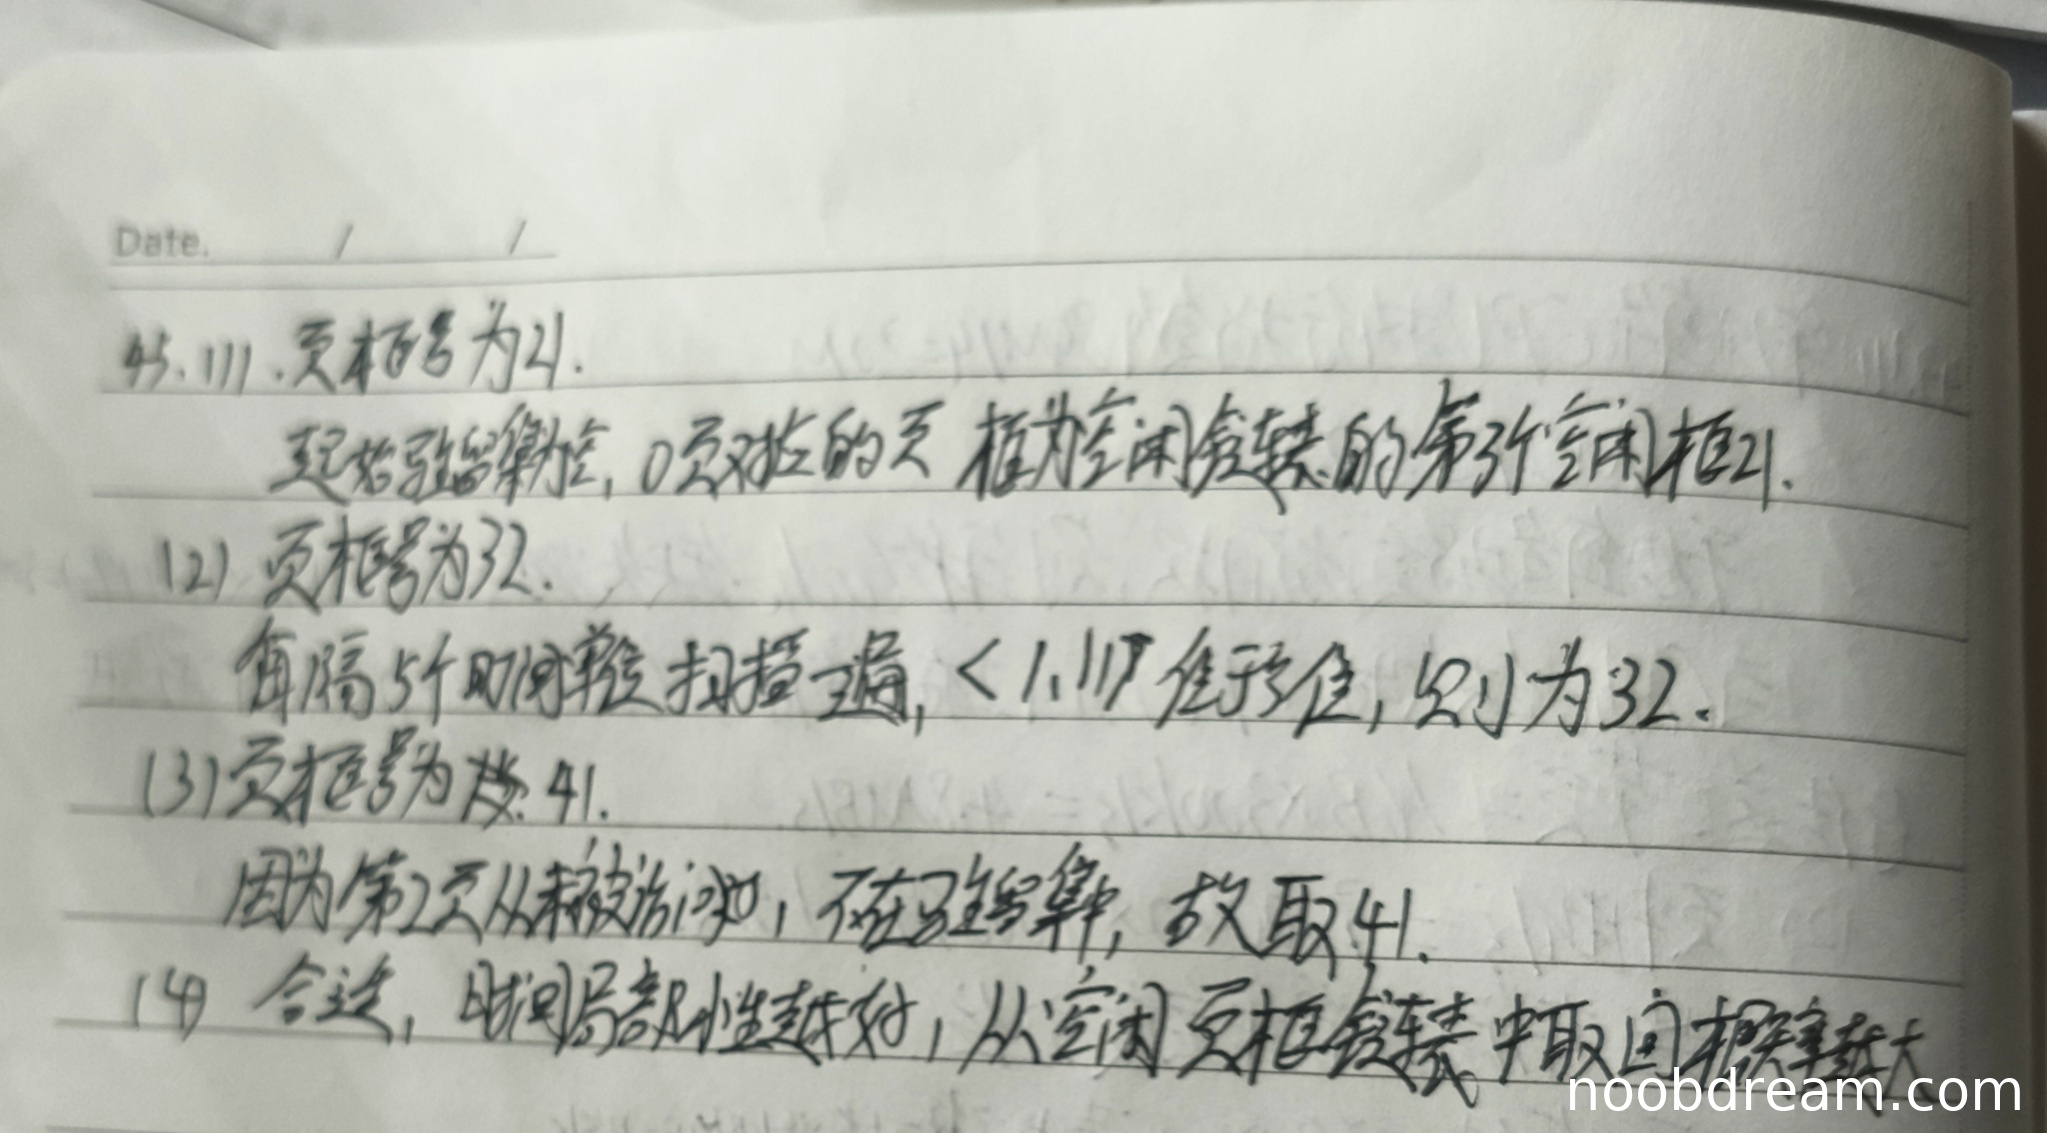 Date. / /
45.(1).页框号为21.
起始驻留集为空,0页对应的页框为空闲链表的第3个空闲框21.
(2) 页框号为32.
每隔5个时间单位扫描一遍,<1,11>住于,则为32.
(3)页框号为 41.
因为第2页从未被访问,不在驻留集中,故取41.
(4) 合适,时间局部性越好,从空闲页框链表中取回概率越大
noobdream.com